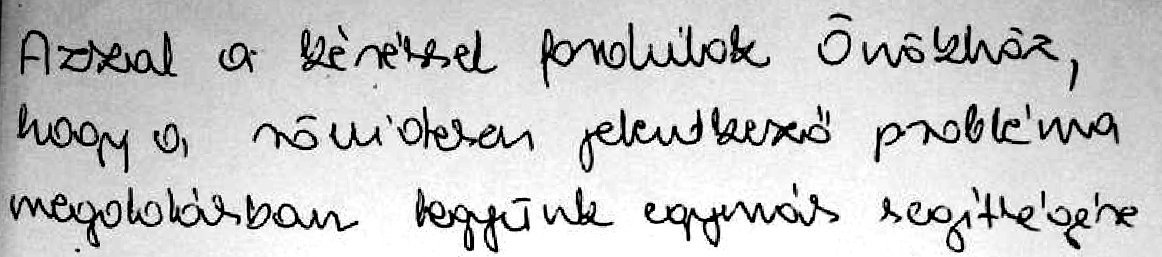 Azzal a kéréssel fordulok Önökhöz,
hogy a rövidesen jelentkező probléma
megoldásban legyünk egymás segítségére